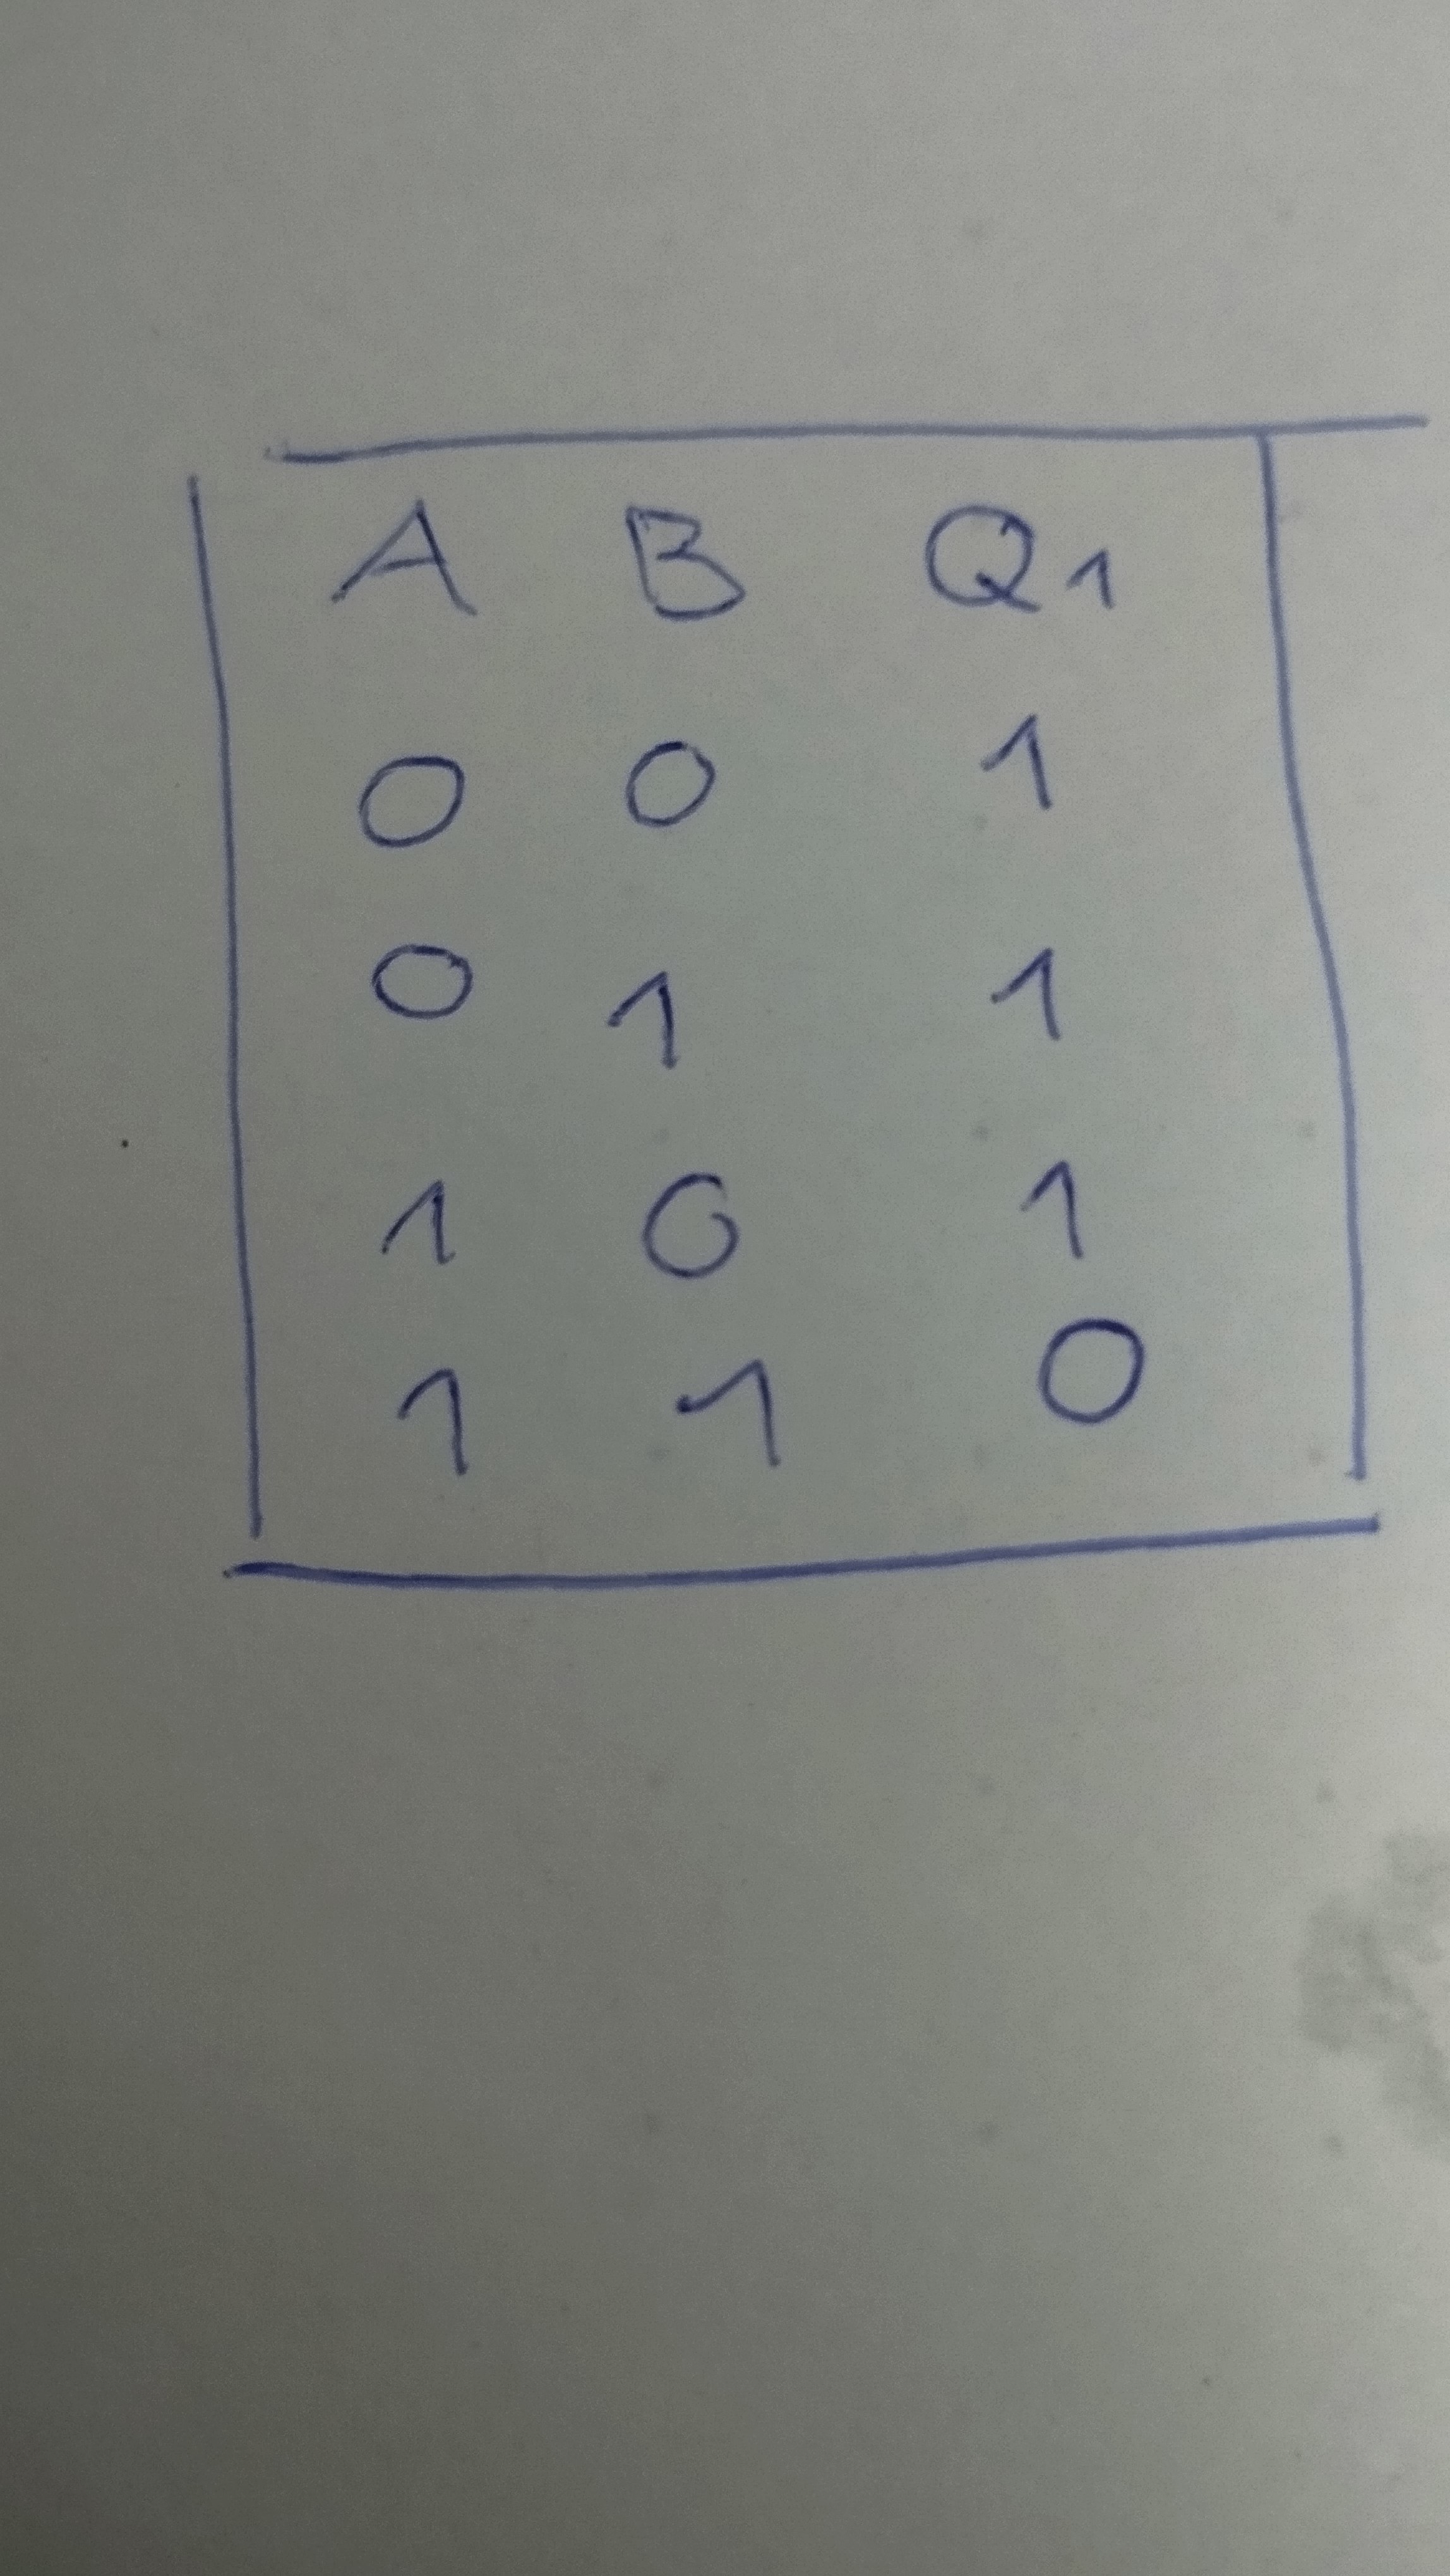 A B Q1
0 0 1
0 1 1
1 0 1
1 1 0